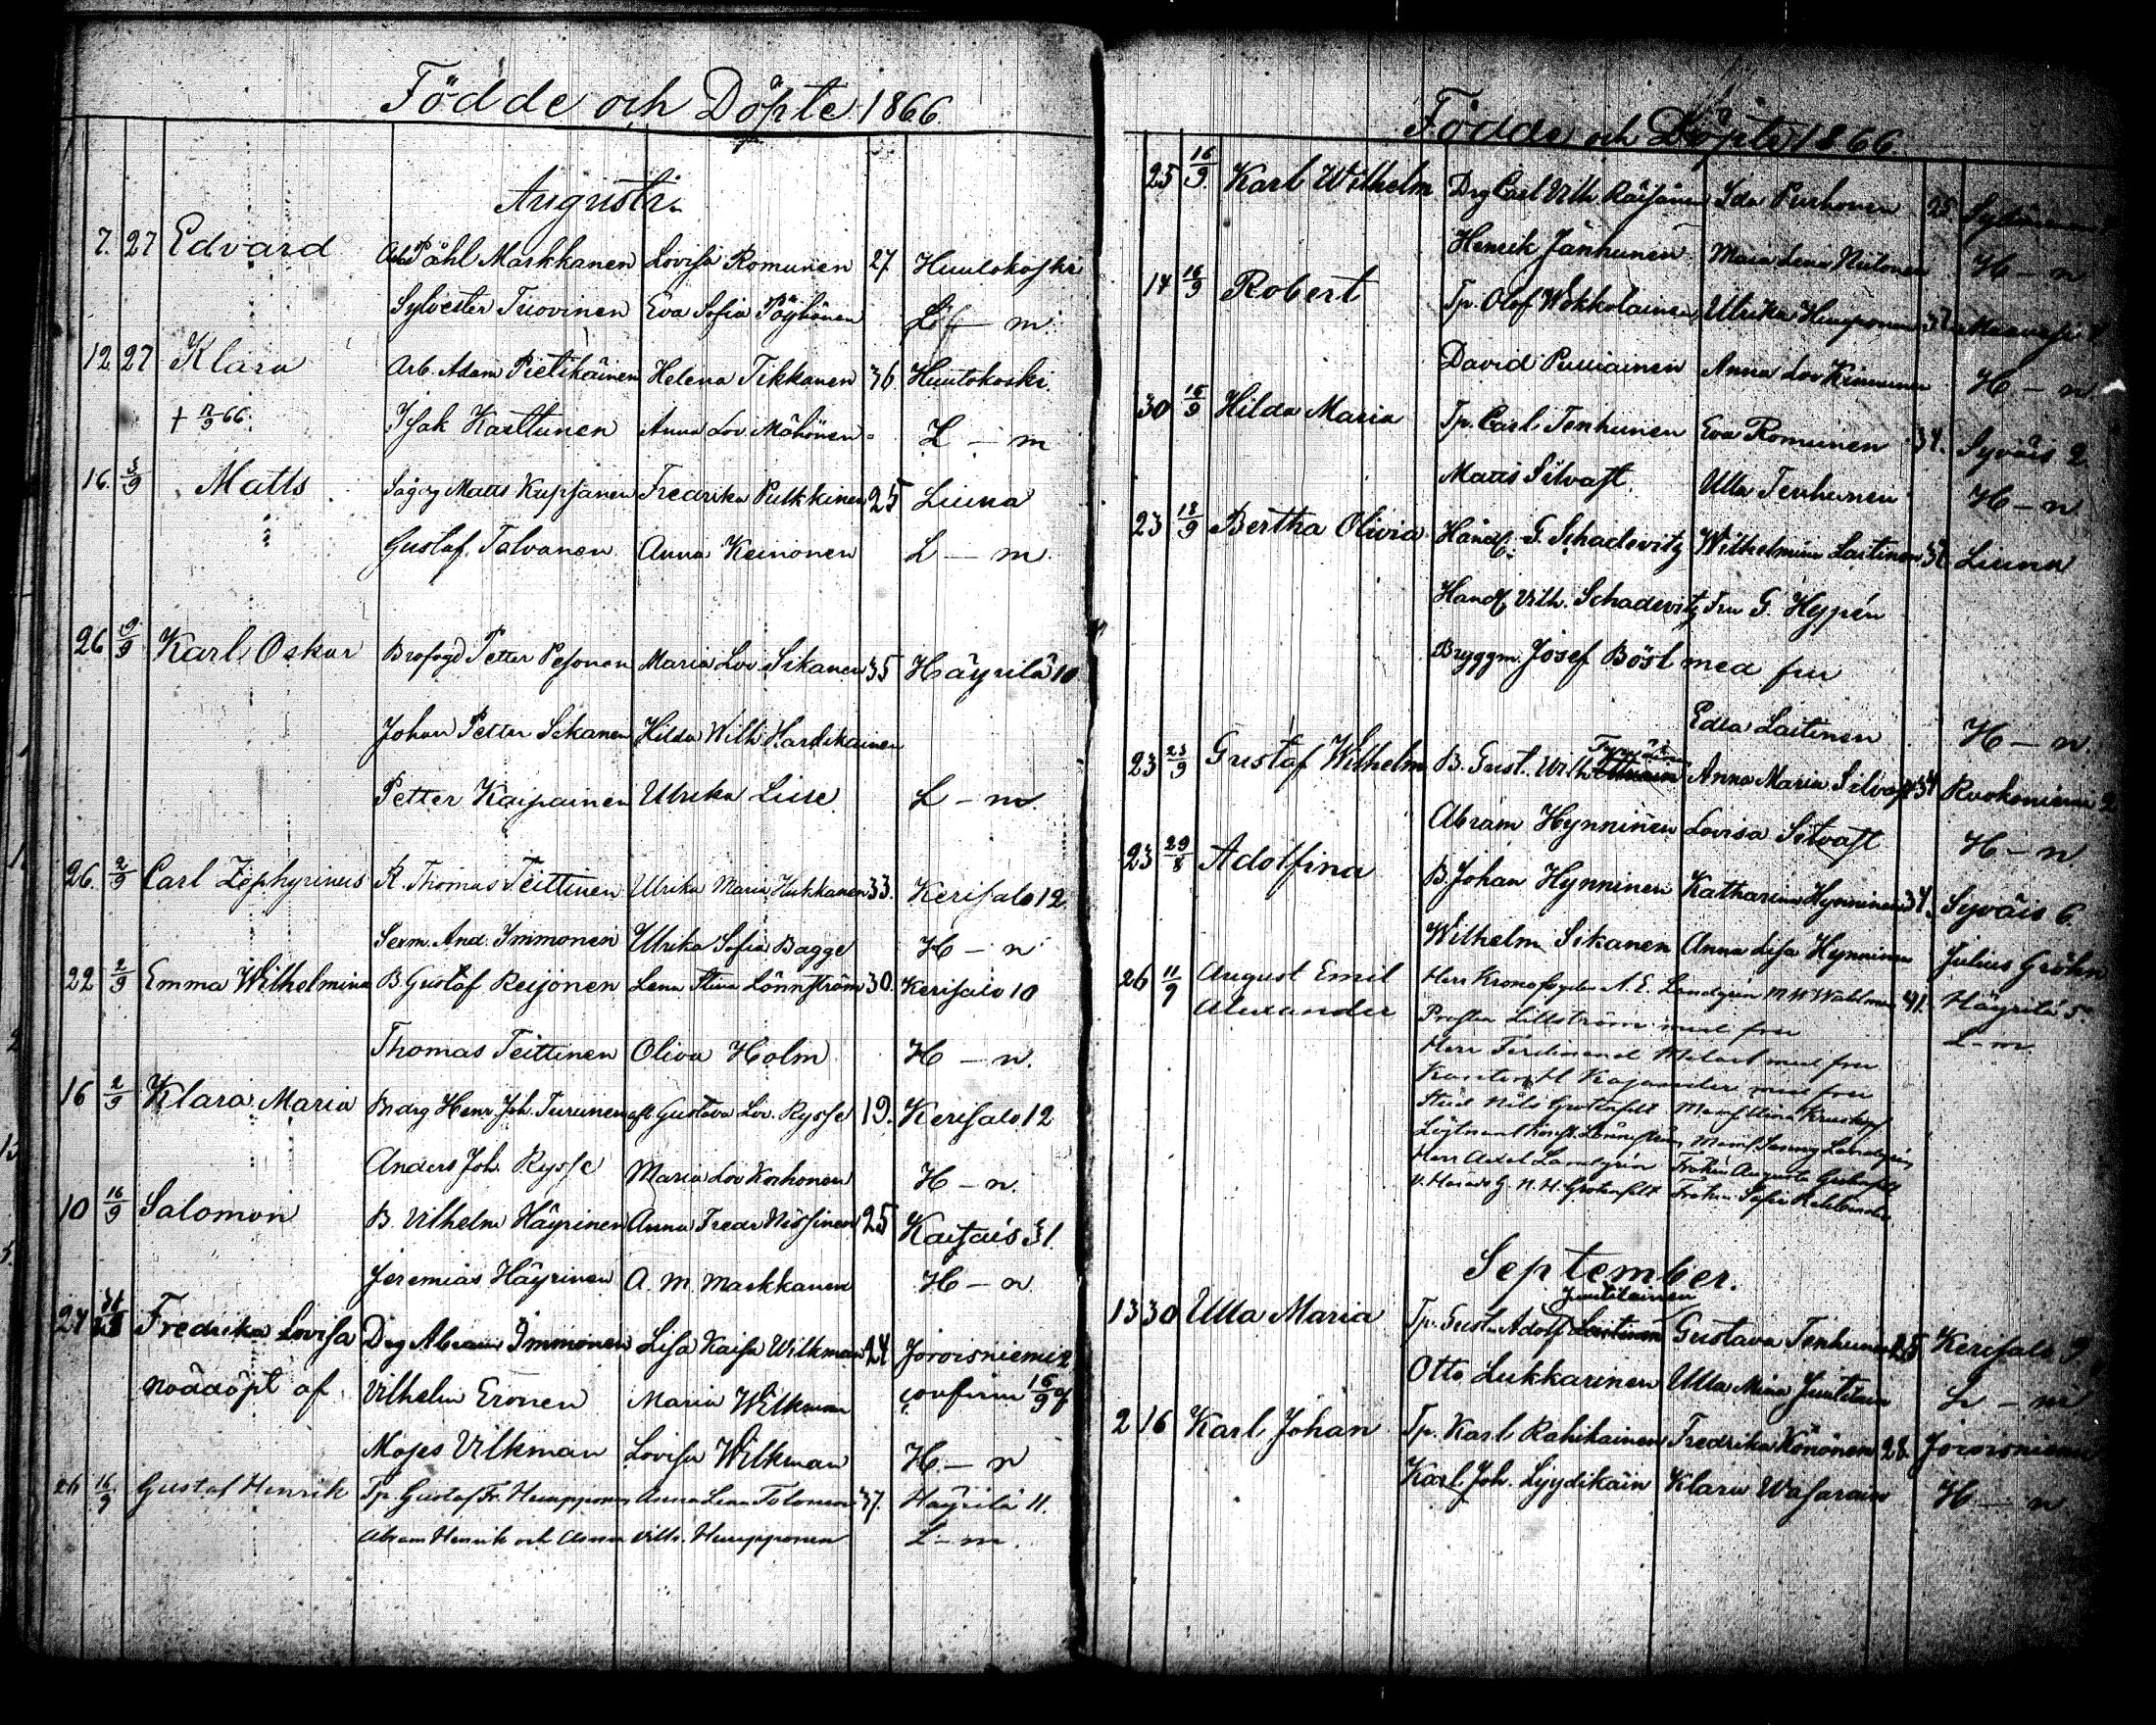 Födde och Döpte 1866
Augusti
7. 27 Edvard Arb Påhl Markkanen Lovisa Romunen 27 Huutokoski
Sylvester Tuovinen Eva Sofia Pöyhönen L - m
12 27 Klara Arb. Adam Pietikäinen Helena Tikkanen 36 Huutokoski
Isak Karttunen Anna Lov. Mähönen L - m
16. 5/9 Matts Matts Kupsanen Fredrika Pulkkinen 25 Liuna
Gustaf Talvanen Anna Keinonen L - m
26 9/9 Karl Oskar Brofogd Petter Pesonen Maria Lov. Sikanen 35 Häyrilä 10
Johan Petter Sikanen Hilda Wilh. Hardikainen
Petter Kaipainen Ulrika Liise L - m
26. 2/9 Carl Zephyrinus R. Thomas Teittinen Ulrika Maria Hukkanen 33. Kerisalo 12
Sexm. And. Immonen Ulrika Sofia Bagge H - n
22 2/9 Emma Wilhelmina B. Gustaf Reijonen Lena Stina Lönnström 30. Kerisalo 10
Thomas Teittinen Oliva Holm H - n.
16 2/9 Klara Maria Bndrg Henr. Joh. Turunen Gustava Lov. Rysse 19. Kerisalo 12
Anders Joh. Rysse Maria Lov Korhonen H - n.
10 16/9 Salomon B. Vilhelm Häyrinen Anna Fredr Nissinen 25 Kaitais 31.
Jeremias Häyrinen A. M. Markkanen H - n
27 Fredrika Lovisa Drg Abram Immonen Lisa Kaisa Wilkman 24 Joroisniemi 2
nöddöpt af Vilhelm Eronen Maria Wilkman confirm 16/9 af
Moses Vilkman Lovisa Wilkman H - n
26 16/9 Gustaf Henrik Tp. Gustaf Fr. Humpponen Anna Lena Tolonen 37. Häyrilä 11.
Abram Henrik och Anna Vilh. Humpponen L - m.
Födde och Döpte 1866
25 16/9 Karl Wilhelm Drg Carl Vilh Räisänen Ida Purhonen 25
Henrik Janhunen Maria Lena H - n
14 16/9 Robert Tp. Olof Wokkolainen Ulrika Humponen 37
David Pulliainen Anna Lov Kinnunen H - n
30 16/9 Hilda Maria Tp. Carl Tenhunen Eva Romunen 34. Syväis 2
Matts Silvast Ulla Tenhunen H - n
23 18/9 Bertha Olivia Handl. G. Schadevitz Wilhelmina Laitinen 37. Liuna
Handl. Vilh. Schadevitz Fru G. Hypén
Bryggm. Josef Böst med fru
Edla Laitinen H - n.
23 23/9 Gustaf Wilhelm B. Gust. Wilh Anna Maria Silvast 34 Ruokoniemi 2
Abram Hynninen Lovisa Silvast H - n
23 29/8 Adolfina B. Johan Hynninen Katharina Hynninen 34. Syväis 6.
Wilhelm Sikanen Anna Lisa Hynninen Julius Gröhn
26 11/9 August Emil Herr Kronofogden A. E. Landgrén M. W. Wahlman 41. Häyrilä 5.
Alexander Prosten Lillström med fru L - m.
Herr Ferdinand med fru
Kajander med fru
Stud Nils Grotenfelt
Löjtnant Mamsl. Fanny Landgrén
Herr Axel Landgrén Fröken Augusta Grotenfelt
N. H. Grotenfelt Fröken Sofie Rehbinder
September.
13 30 Ulla Maria Tp. Gust. Adolf Laitinen Juutilainen Gustava Tenhunen 35 Kerisalo 9
Otto Lukkarinen Ulla Mina Juutilain L - m
2 16 Karl Johan Tp. Karl Rahikainen Fredrika Könönen 28. Joroisniemi
Karl Joh. Lyydikäin Klara Wasarain H - n